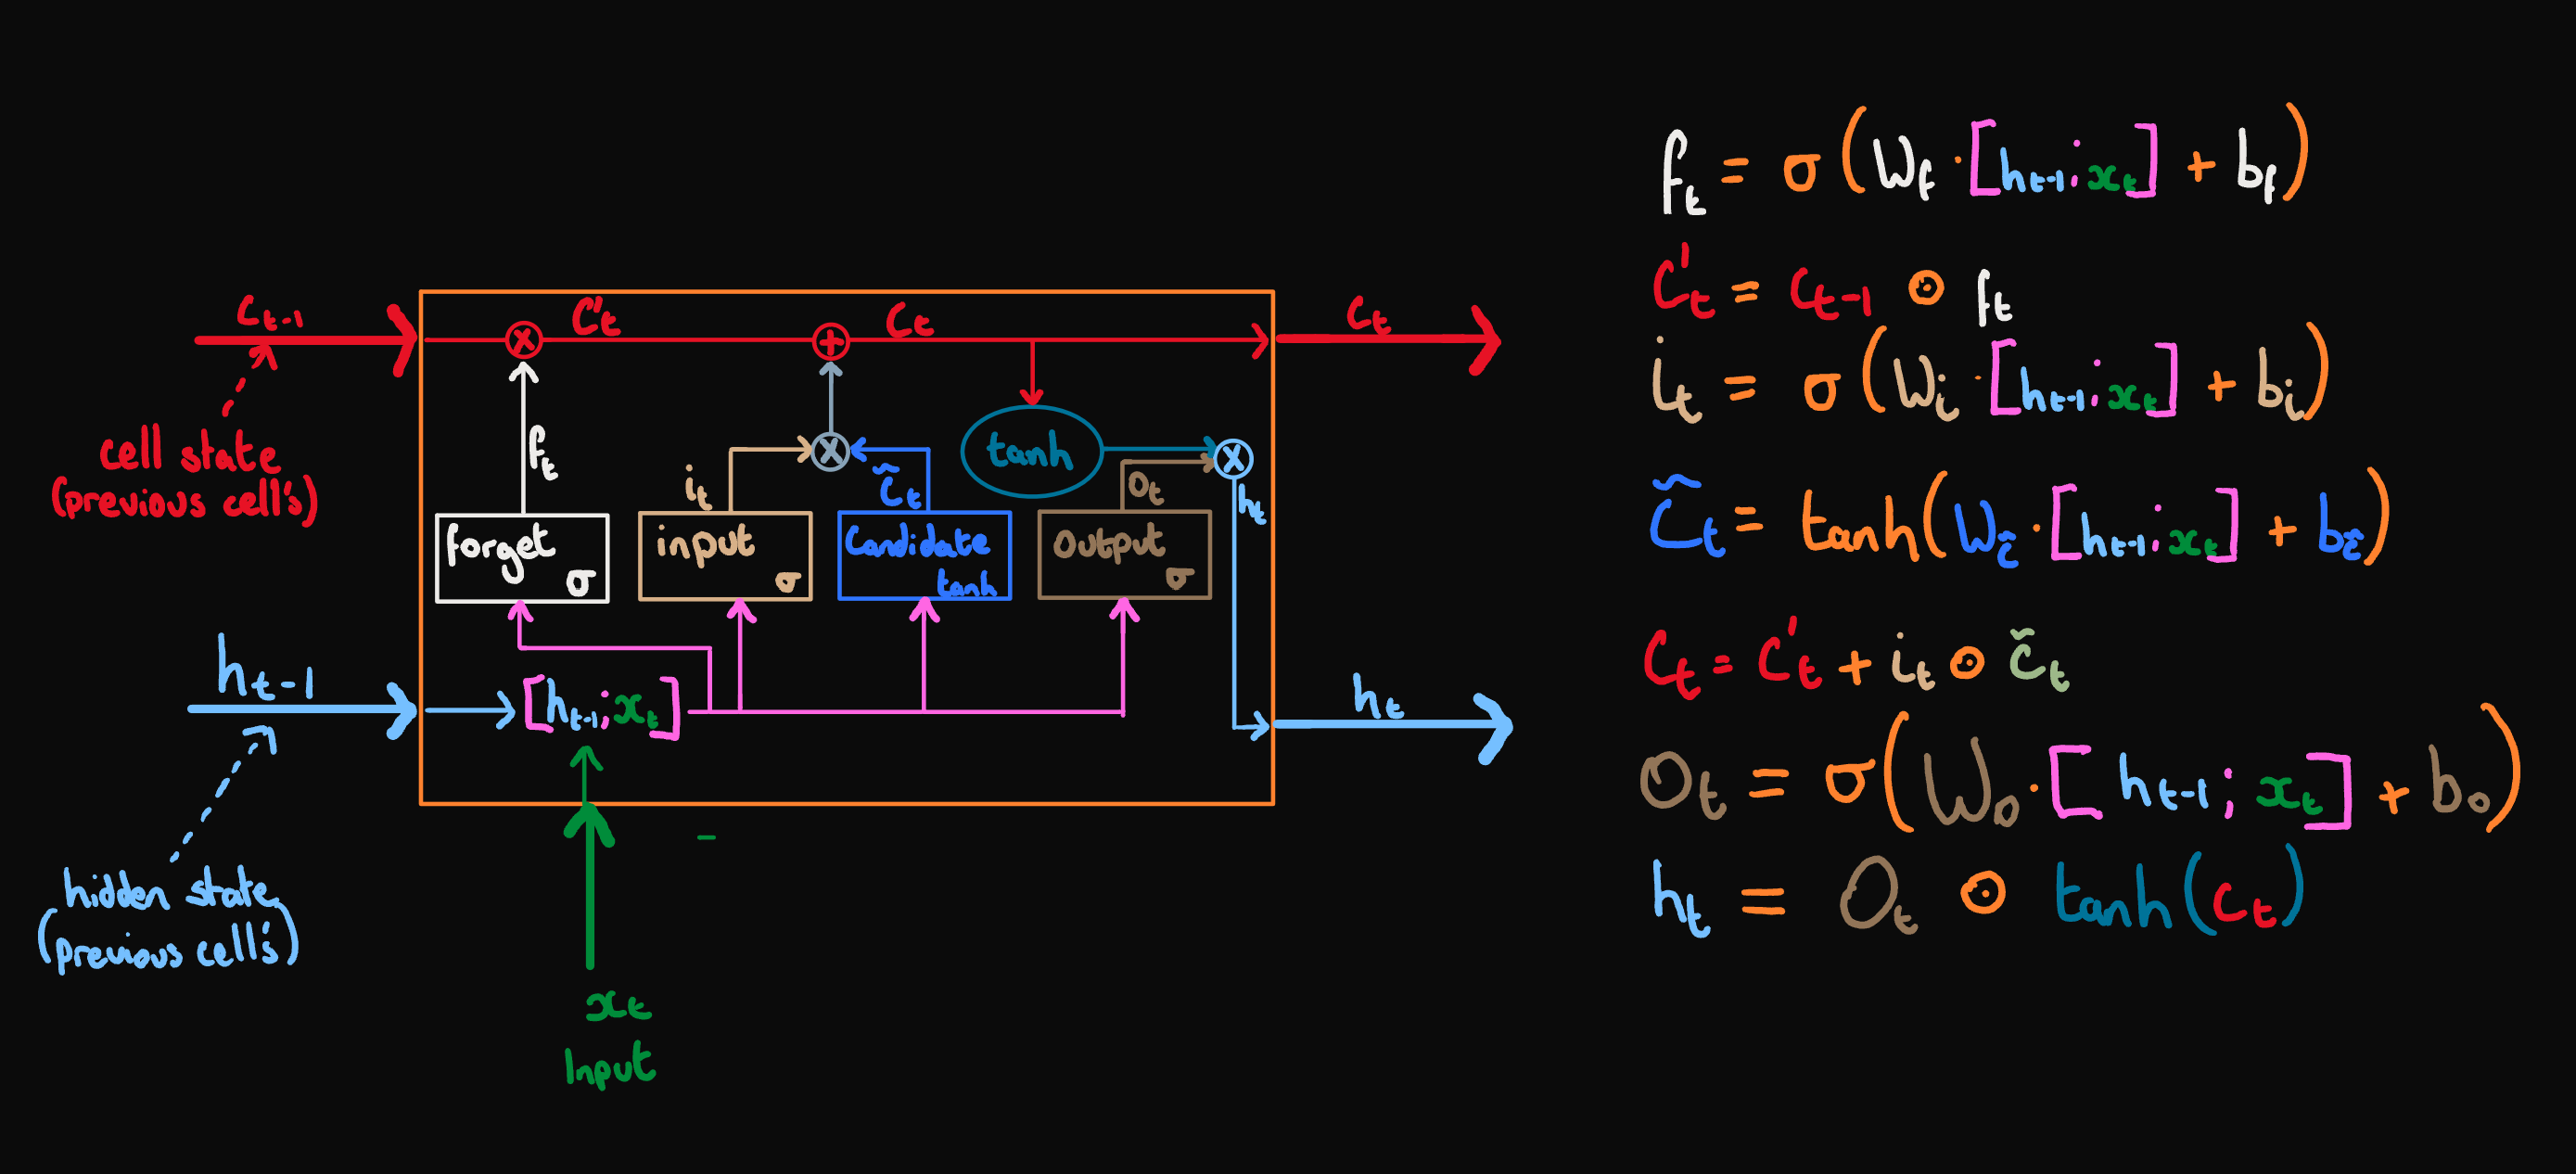 C_{t-1}
C'_t
C_t
C_t
cell state
(previous cell's)
f_t
i_t
C̃_t
tanh
o_t
h_t
forget
σ
input
σ
Candidate
tanh
Output
σ
h_{t-1}
[h_{t-1};x_t]
h_t
hidden state
(previous cell's)
x_t
Input
f_t = σ(W_f · [h_{t-1};x_t] + b_f)
C'_t = C_{t-1} ⊙ f_t
i_t = σ(W_i · [h_{t-1};x_t] + b_i)
C̃_t = tanh(W_c̃ · [h_{t-1};x_t] + b_c̃)
C_t = C'_t + i_t ⊙ c̃_t
O_t = σ(W_o · [h_{t-1};x_t] + b_o)
h_t = O_t ⊙ tanh(C_t)